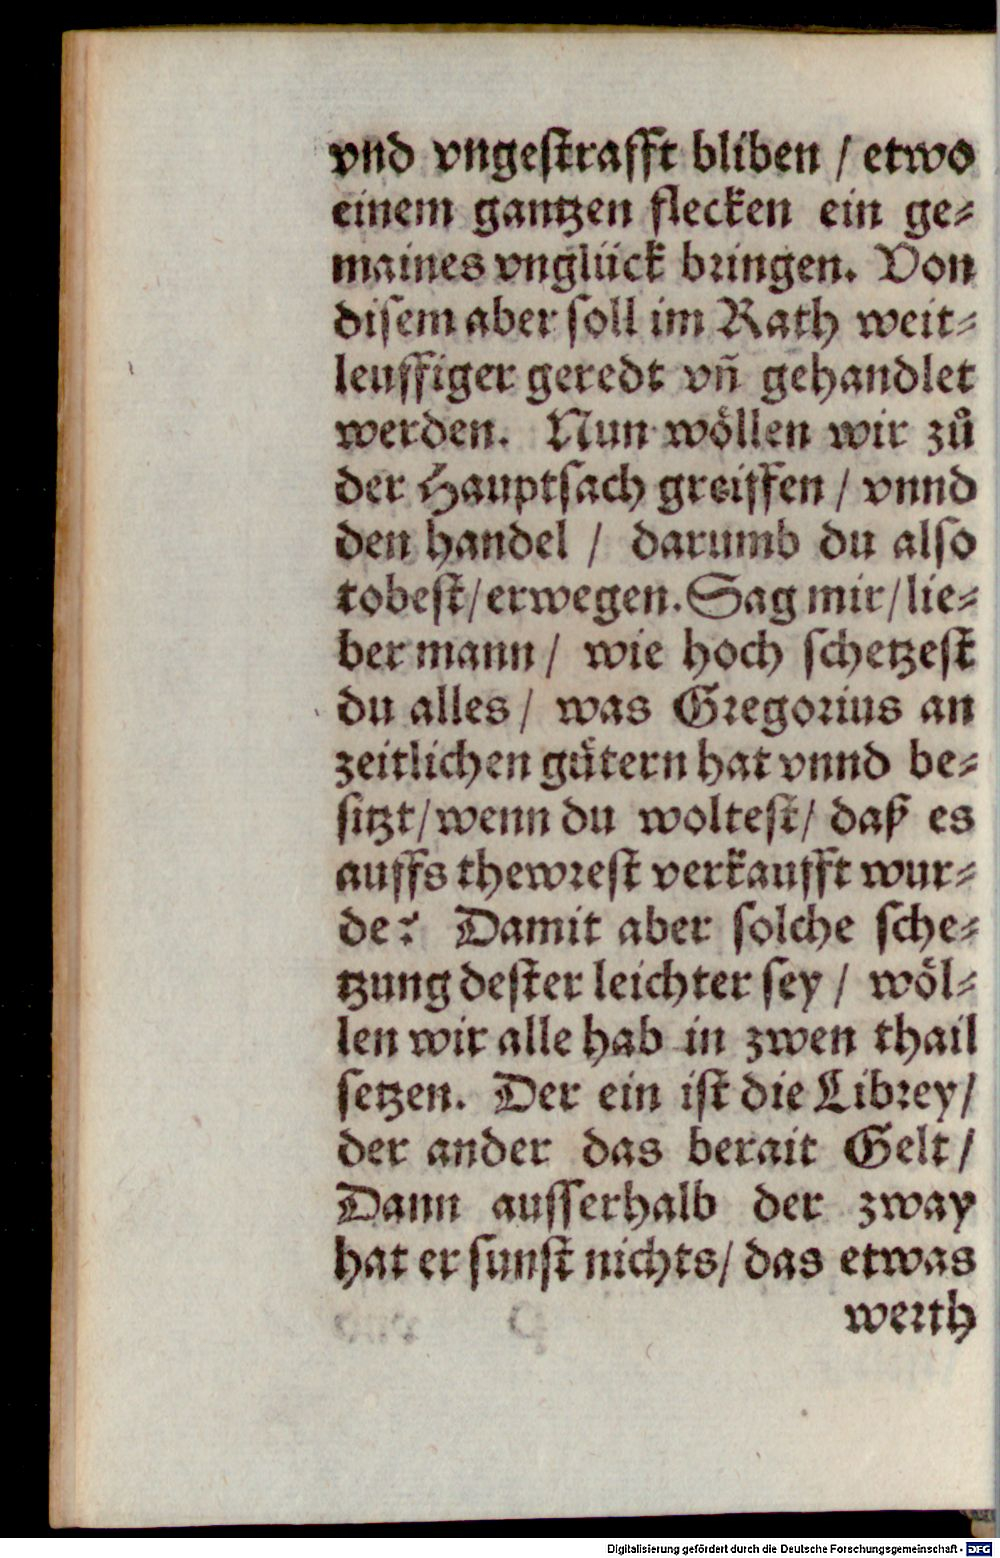 vnd vngestrafft bliben / etwo
einem gantzen flecken ein ge⸗
maines vnglück bringen. Von
disem aber soll im Rath weit⸗
leuffiger geredt vñ gehandlet
werden. Nun wöllen wir zů
der Hauptsach greiffen / vnnd
den handel / darumb du also
tobest/ erwegen. Sag mir/ lie⸗
ber mann / wie hoch schetzest
du alles / was Gregorius an
zeitlichen gůtern hat vnnd be⸗
sitzt/ wenn du woltest/ daß es
auffs thewrest verkaufft wur⸗
de? Damit aber solche sche⸗
tzung dester leichter sey / wöl⸗
len wir alle hab in zwen thail
setzen. Der ein ist die Librey/
der ander das berait Gelt/
Dann ausserhalb der zway
hat er sunst nichts/ das etwas
werth
Digitalisierung gefördert durch die Deutsche Forschungsgemeinschaft - DFG